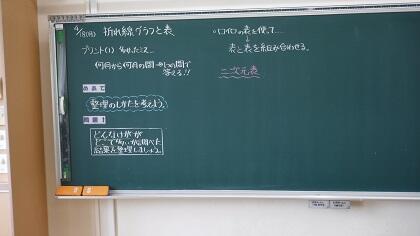 折れ線グラフと表
プリント(1)
何月から何月の間→1つの間で
答える!!
めあて
整理のしかたを考えよう。
問題1
どんなけがが
どこで多いか調べた
結果を整理しましょう。
の表を使って…
表と表を組み合わせる。
二次元表